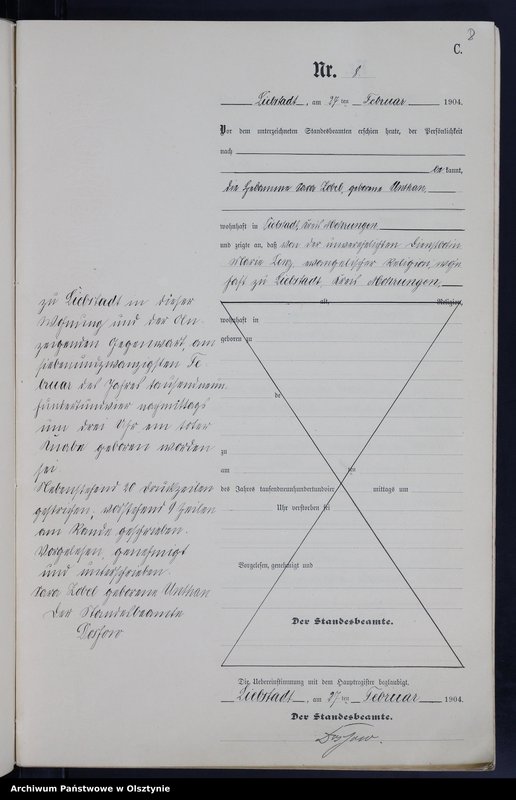 8
C.
Nr. 8
Liebstadt, am 27ten Februar 1904.
Vor dem unterzeichneten Standesbeamten erschien heute, der Persönlichkeit
nach
be kannt,
die Hebamme Sara Zobel, geborene Unthan,
wohnhaft in Liebstadt, Kreis Mohrungen,
und zeigte an, daß von der unverehelichten Dienstbotin
Marie Lenz, evangelischer Religion, wohn
haft zu Liebstadt, Kreis Mohrungen,
alt, Religion,
wohnhaft in
geboren zu
zu Liebstadt in dieser
Wohnung und der An-
zeigenden Gegenwart, am
siebenundzwanzigsten Fe
bruar des Jahres tausendneun
hundertundvier nachmittags
um drei Uhr ein toter
Knabe geboren worden
sei
de
zu
am um
des Jahres tausendneunhundertundvier mittags um
Uhr verstorben sei
Nebenstehend 20 Druckzeilen
gestrichen, vorstehend 9 Zeilen
am Rande geschrieben.
Vorgelesen, genehmigt
und unterschrieben.
Sara Zobel geborene Unthan
Der Standesbeamte
Vorgelesen, genehmigt und
Der Standesbeamte.
Die Uebereinstimmung mit dem Hauptregister beglaubigt.
Liebstadt, am 27ten Februar 1904.
Der Standesbeamte.
Archiwum Państwowe w Olsztynie